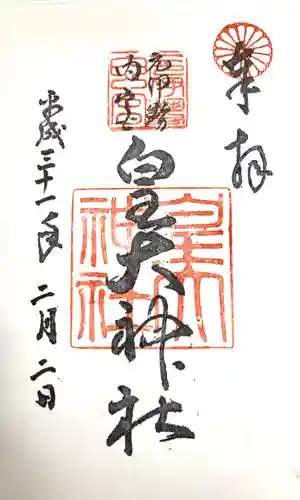 奉拝
元伊勢
内宮
皇大神社
皇大
神社
平成三十一年 二月 二日